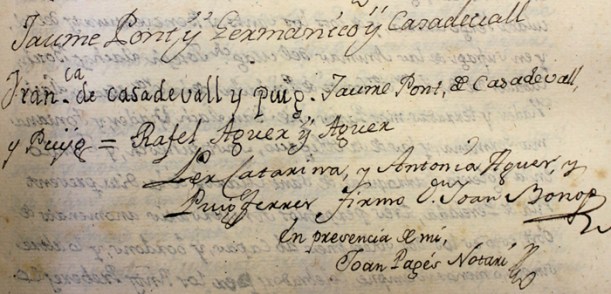 Jaume Pont ÿ Germanico ÿ Casadevall
Fran.ca de casadevall y Puig. Jaume Pont, de Casadevall,
y Puiÿg = Rafel Aguer ÿ Aguer
Per Catarina, y Antonia Aguer, y
Puig Ferrer firmo D.n Joan Bonop
En presencia de mi,
Joan Pagés Notari